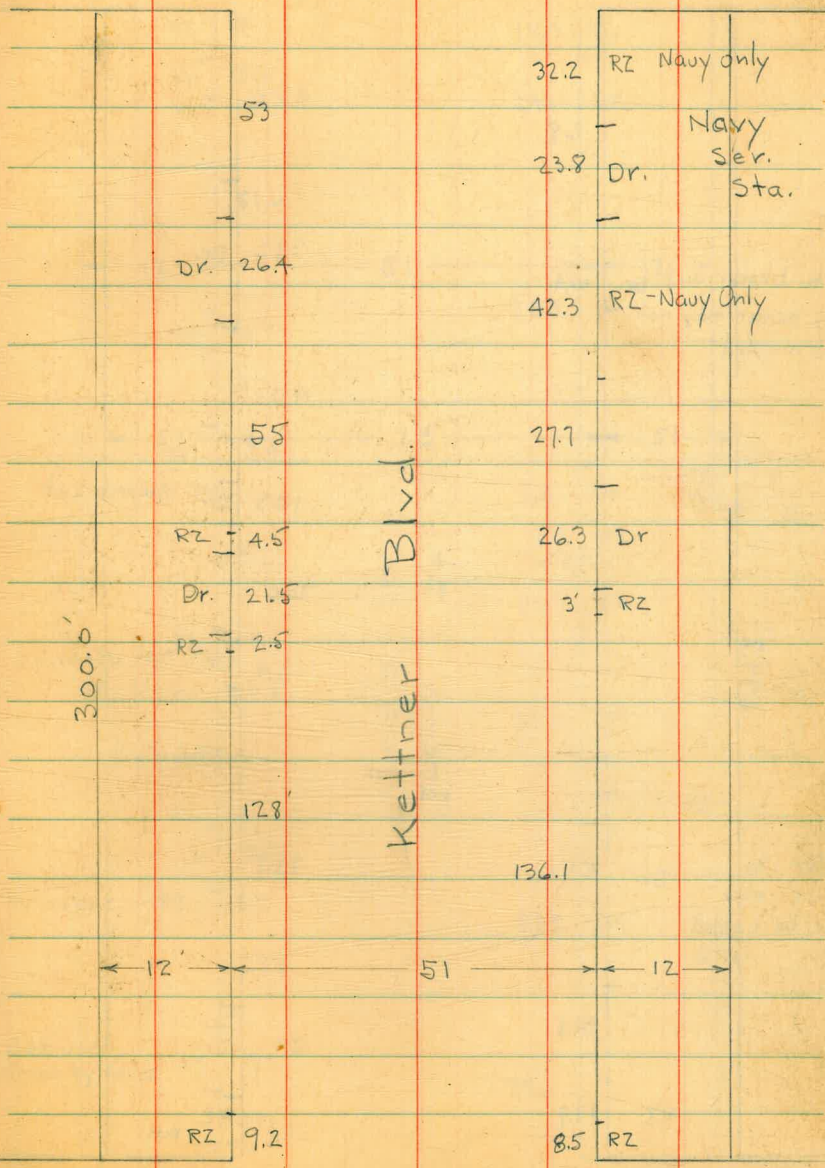 53
Dr. 26.4
55
RZ 4.5
Dr. 21.5
RZ 2.5
300.0'
128'
RZ 9.2
Kettner Blvd.
12'
51
12
32.2 RZ Navy only
Navy
Ser.
Sta.
23.8 Dr.
42.3 RZ-Navy Only
27.7
26.3 Dr
3' RZ
136.1
8.5 RZ